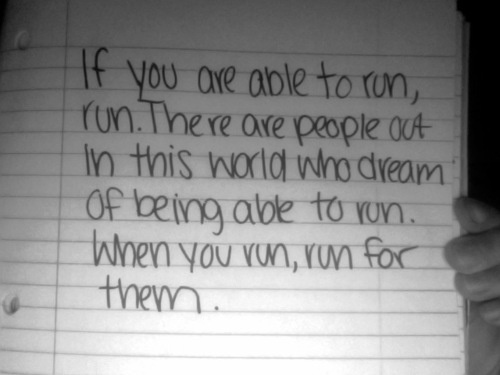 If you are able to run,
run. There are people out
In this world who dream
Of being able to run.
When you run, run for
them.